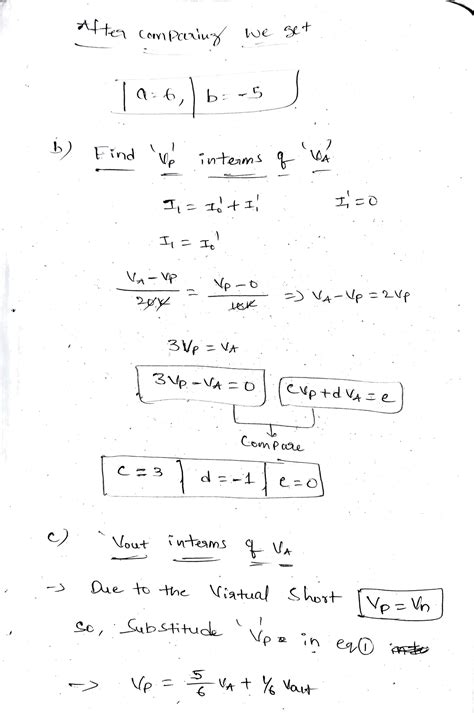 After comparing we get
a=6, b=-5
b) Find 'Vp' interms of 'VA'
I1 = I0' + I1' I1' = 0
I1 = I0'
VA-VP/20K = VP-0/10K => VA-VP = 2VP
3VP = VA
3VP-VA=0 CVP+dVA=e
Compare
C=3 d=-1 e=0
c) Vout interms of VA
-> Due to the Virtual Short VP=Vn
so, Substitude 'Vp' in eq①
-> VP = 5/6 VA + 1/6 Vout